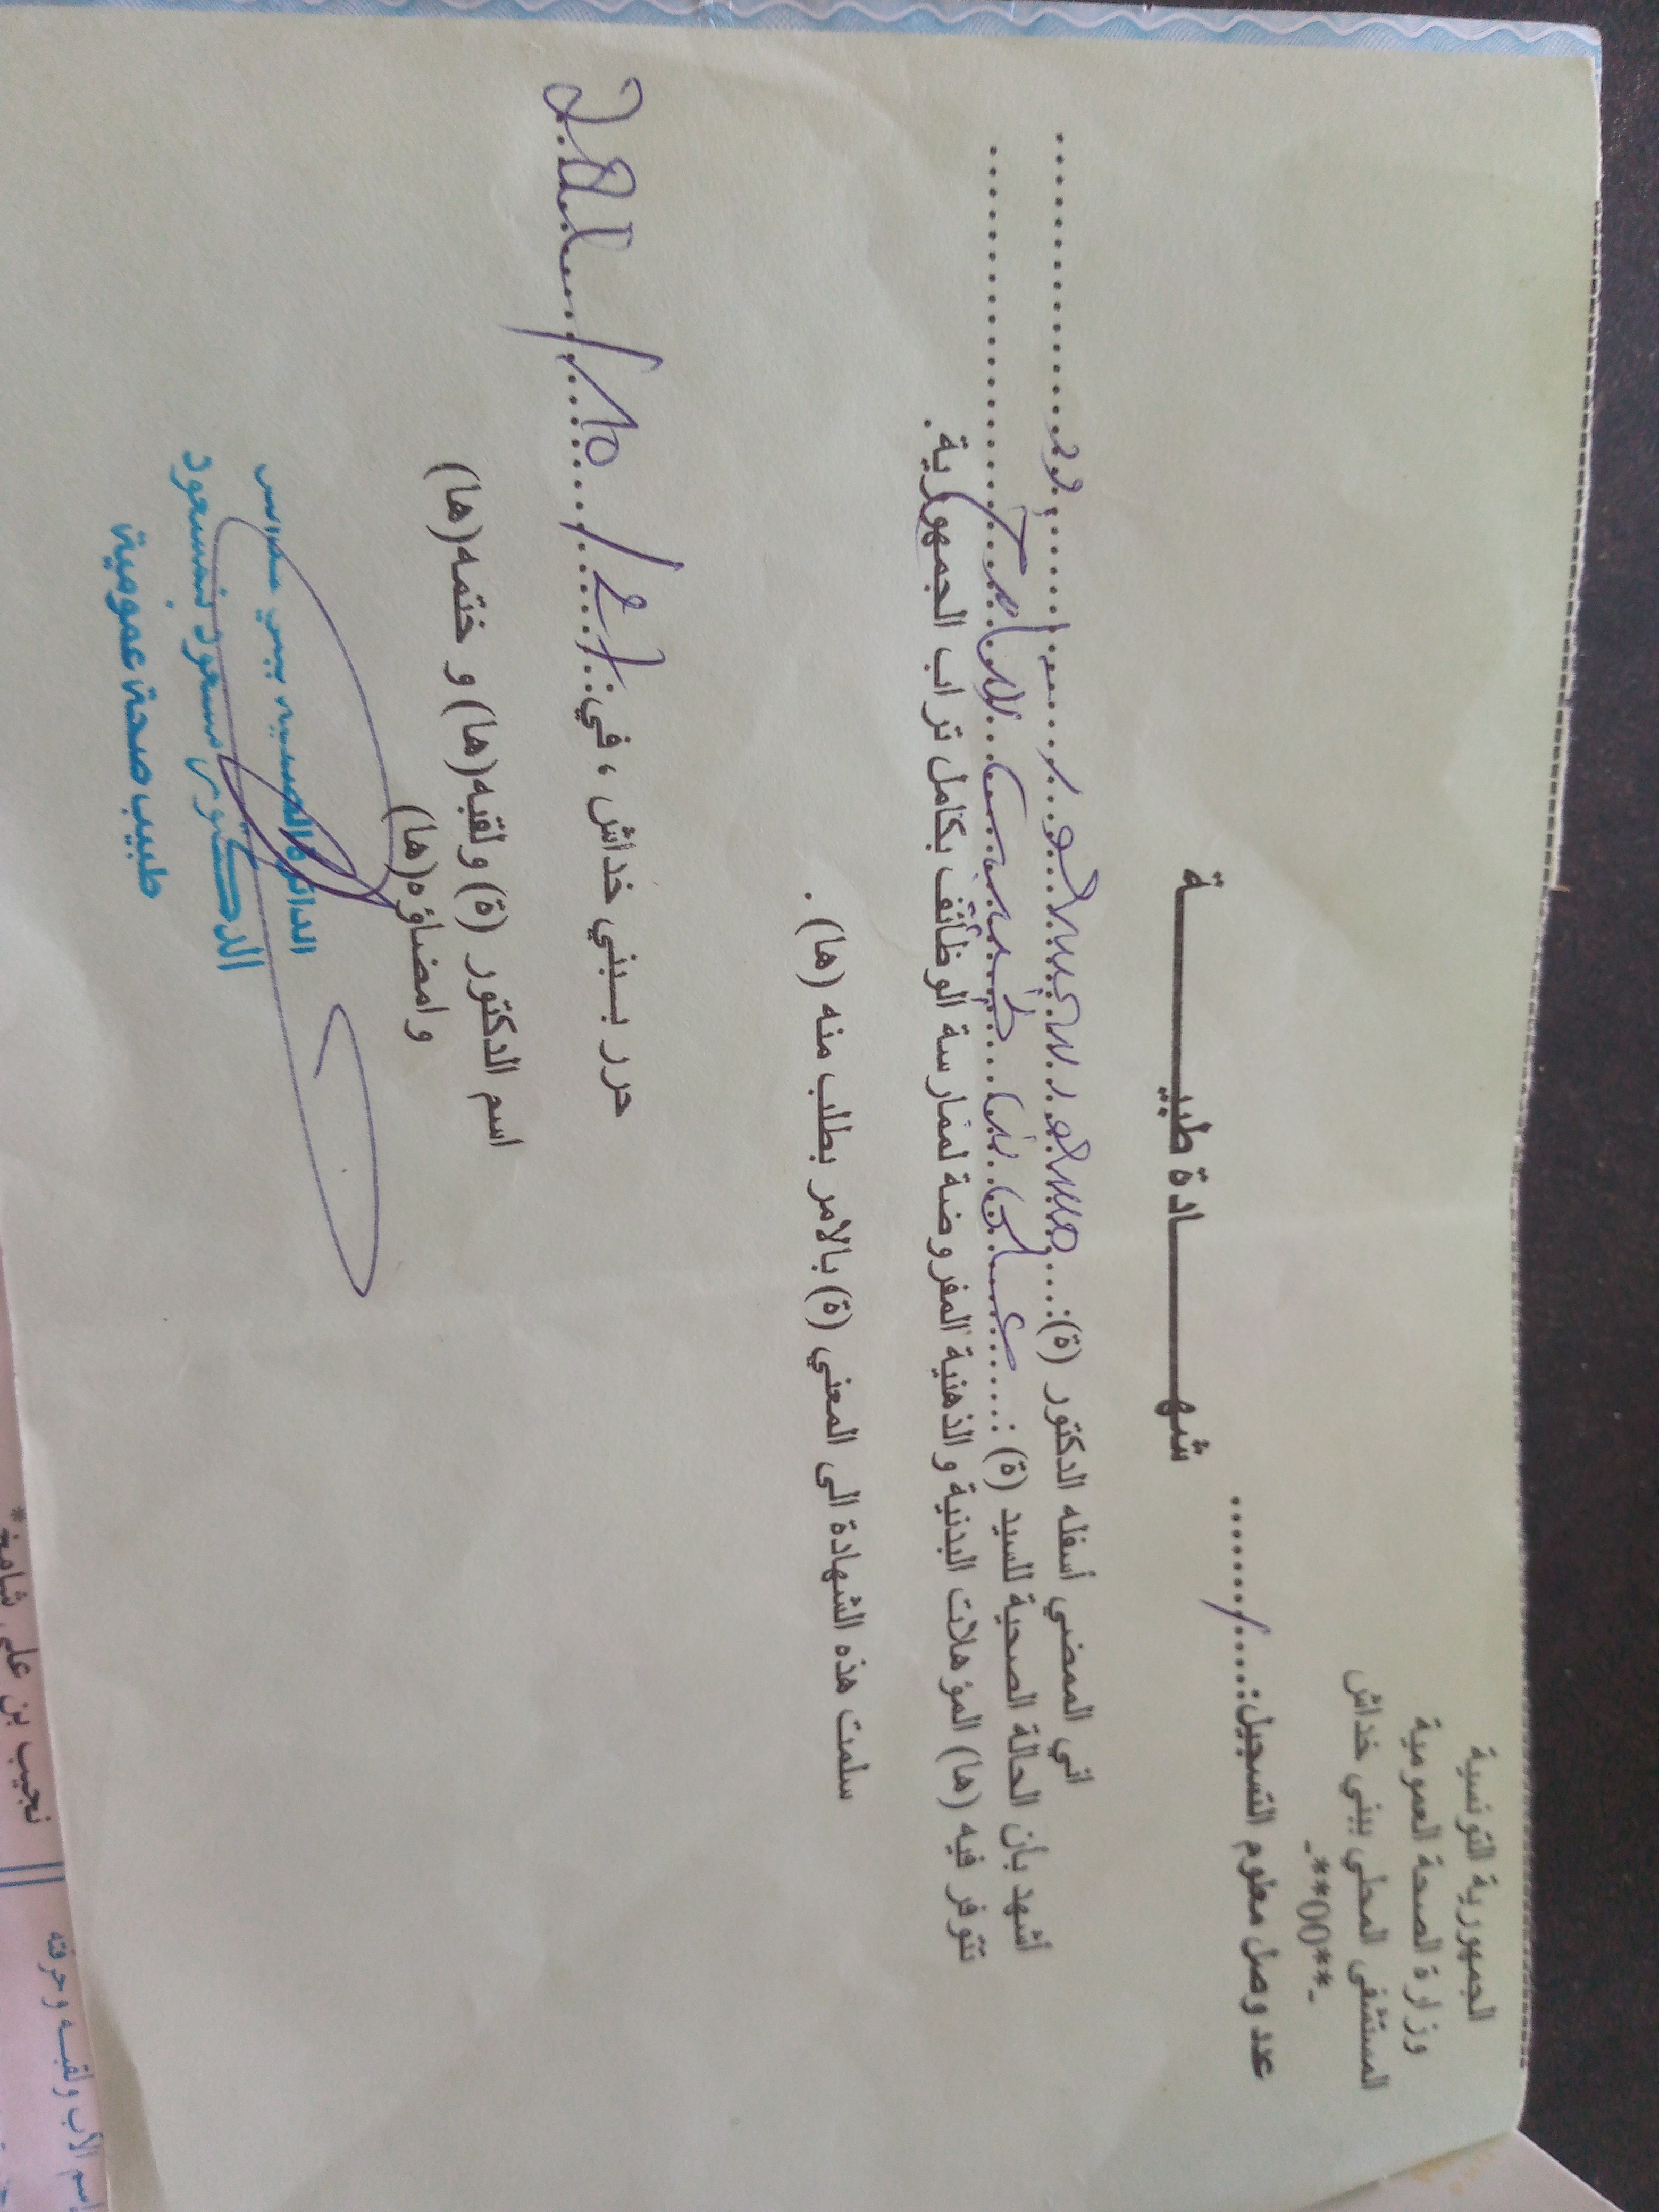 الجمهورية التونسية
وزارة الصحة العمومية
المستشفى المحلي ببني خداش
-**00**-
عدد وصل معلوم التسجيل:......../........
شهـــــــادة طبيـــــــة
اني الممضي أسفله الدكتور (ة):.... مسعود بنمسعود
أشهد بأن الحالة الصحية للسيد (ة) :
تتوفر فيه (ها) المؤهلات البدنية والذهنية المفروضة لممارسة الوظائف بكامل تراب الجمهورية.
سلمت هذه الشهادة الى المعني (ة) بالامر بطلب منه (ها) .
حرر بـــبني خداش ، في
اسم الدكتور (ة) ولقبه(ها) و ختمه(ها)
وامضاؤه(ها)
الدائرة الصحية ببني خداش
الدكتور مسعود بنمسعود
طبيب صحة عمومية
إسم الأب ولقبـــه وحرفته
نجيب بن علي